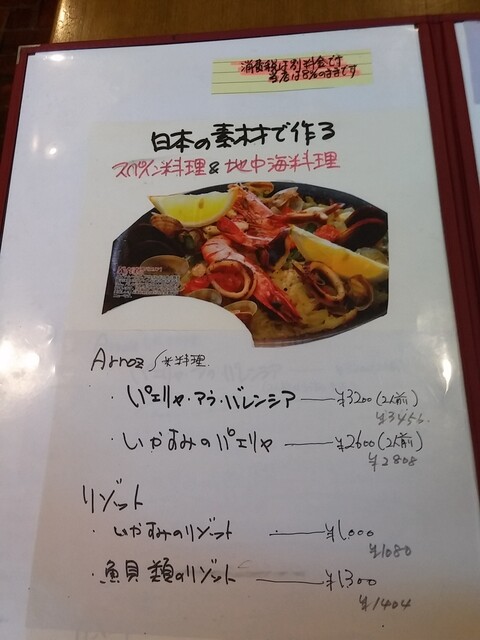 消費税は別料金です
当店は8%のままです
日本の素材で作る
スペイン料理&地中海料理
Arroz 米料理
・パエリャ・アラ・バレンシア ―― ¥3200(2人前)
¥3456.
・いかすみのパエリャ ―― ¥2600(2人前)
¥2808
リゾット
・いかすみのリゾット ―― ¥1,000
¥1080
・魚貝類のリゾット ―― ¥1300
¥1404